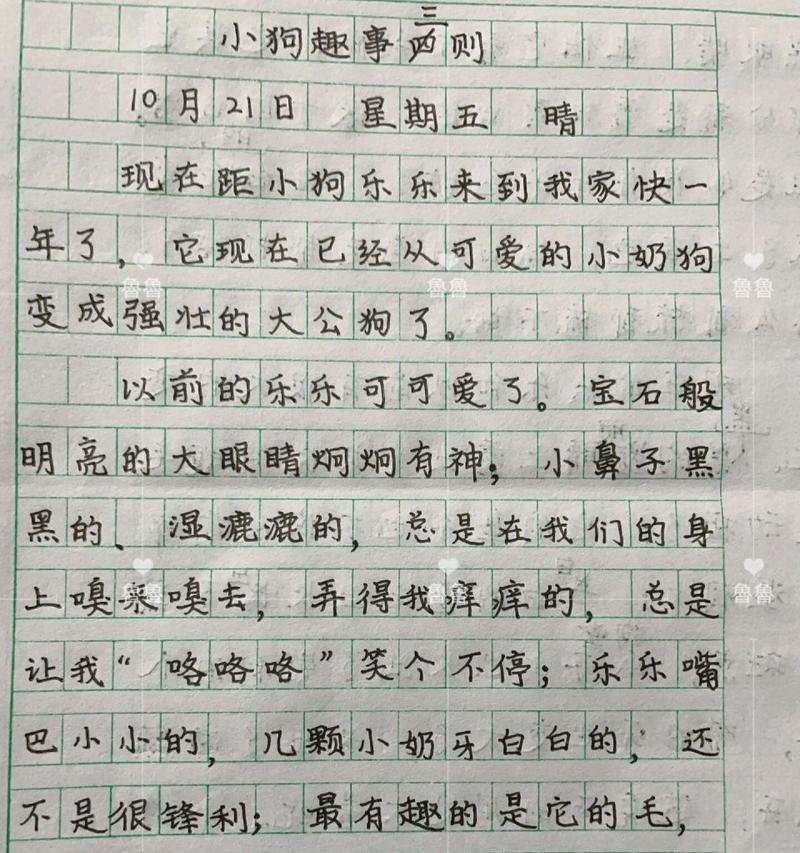 小狗趣事三则
10月21日 星期五 晴
现在距小狗乐乐来到我家快一
年了，它现在已经从可爱的小奶狗
变成强壮的大公狗了。
以前的乐乐可可爱了。宝石般
明亮的大眼睛炯炯有神；小鼻子黑
黑的、湿漉漉的，总是在我们的身
上嗅来嗅去，弄得我痒痒的，总是
让我“咯咯咯”笑个不停；乐乐嘴
巴小小的，几颗小奶牙白白的，还
不是很锋利；最有趣的是它的毛，
魯魯
魯魯
魯魯
魯魯
魯魯
魯魯